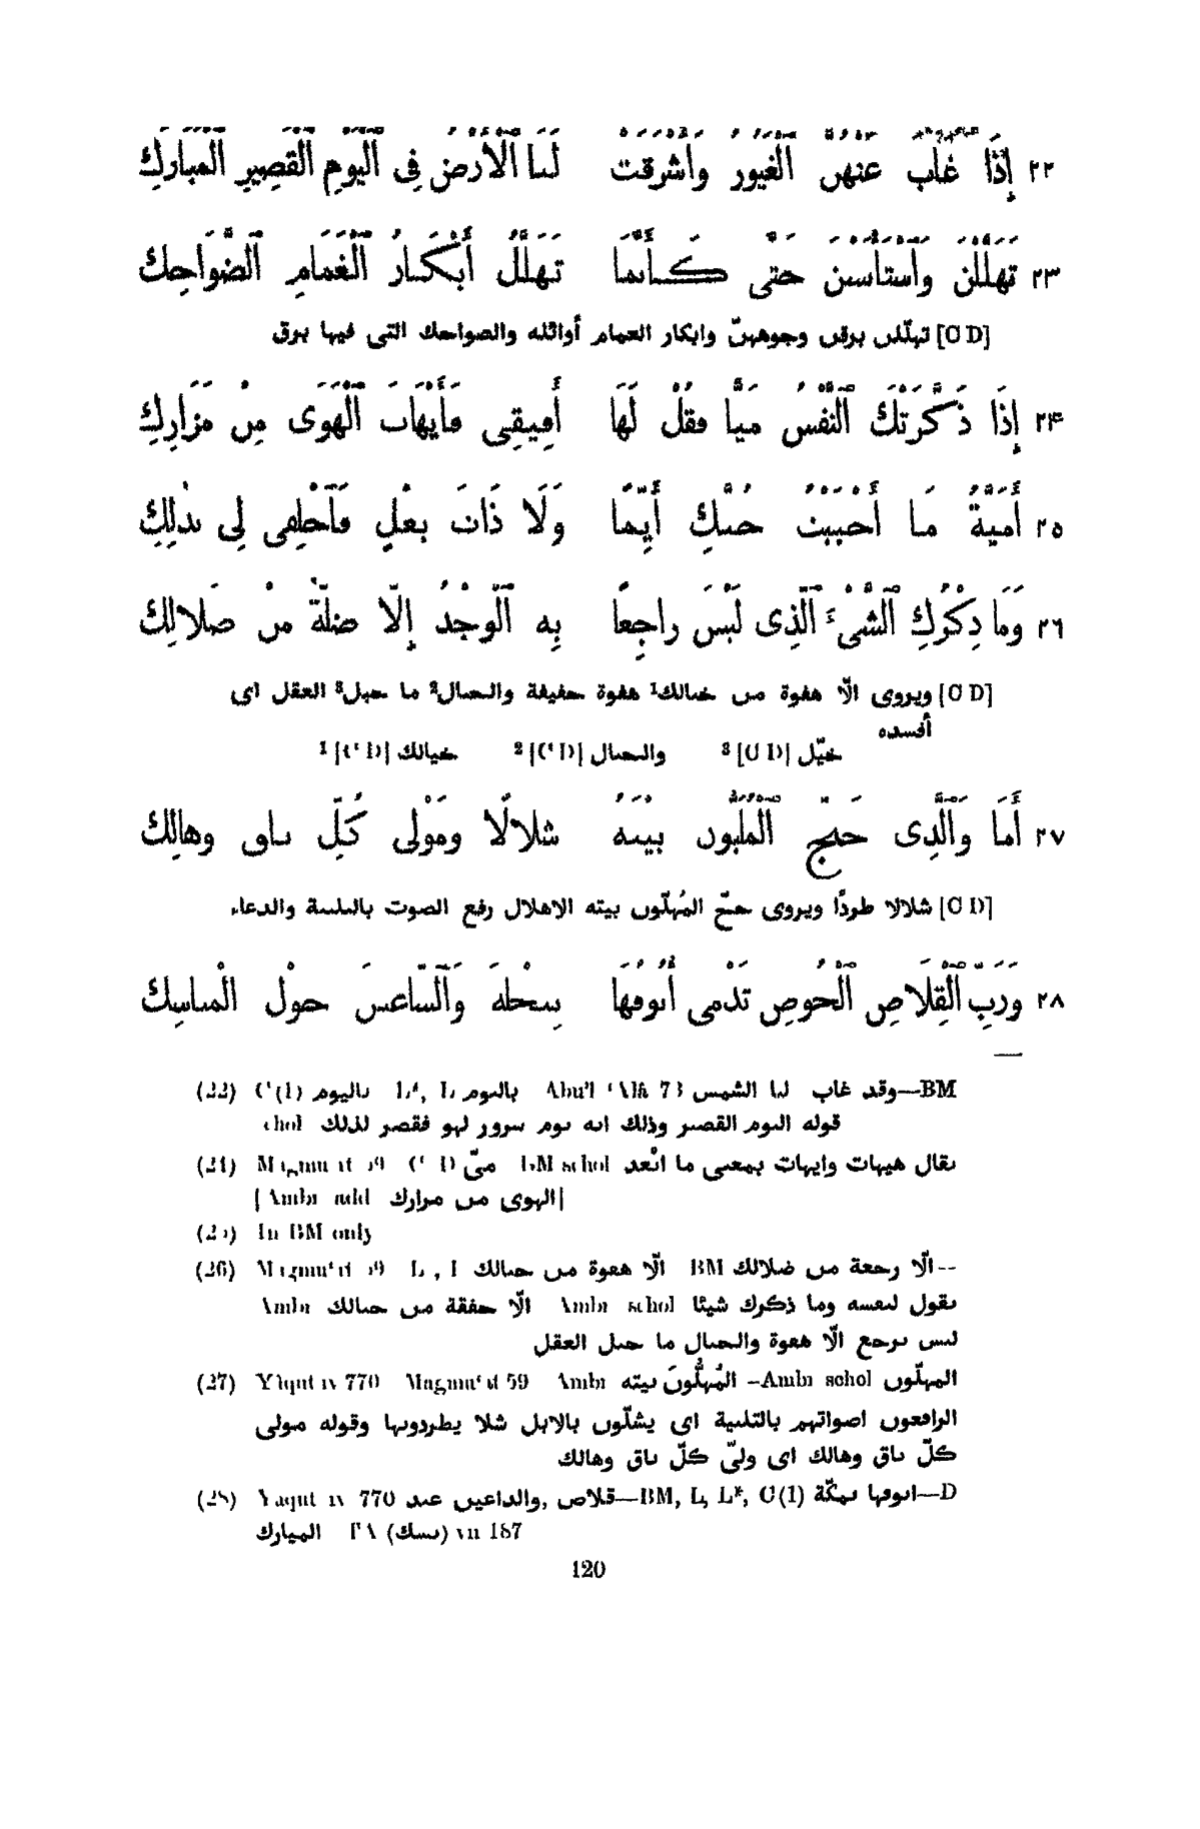 ٢٢ إِذَا غَابَ عَنْهُنَّ الْغَيُورُ وَأَشْرَقَتْ لَنَا الْأَرْضُ فِى الْيَوْمِ الْقَصِيرِ الْمُبَارَكِ
٢٣ تَهَلَّلْنَ وَاسْتَأْنَسْنَ حَتَّى كَأَنَّمَا تَهَلَّلُ أَبْكَارُ الْغَمَامِ الضَّوَاحِكِ
[C D] تهلّلن برقن وجوههنّ وابكار الغمام أوائله والضواحك التى فيها برق
٢۴ إِذَا ذَكَّرَتْكَ النَّفْسُ مَيًّا فَقُلْ لَهَا أَفِيقِى فَأَيْهَاتَ الْهَوَى مِنْ مَزَارِكِ
٢٥ أُمَيَّةُ مَا أَحْبَبْتُ حُبَّكِ أَيِّمًا وَلَا ذَاتَ بَعْلٍ فَاحْلِفِى لِى بِذَلِكِ
٢٦ وَمَا ذِكْرُكِ الشَّىْءَ الَّذِى لَيْسَ رَاجِعًا بِهِ الْوَجْدُ إِلَّا ضَلَّةٌ مِنْ ضَلَالِكِ
[C D] ويروى الّا هفوة من خبالك1 هفوة خفيفة والخبال2 ما خبل3 العقل اى
أفسده
1 [C D] خيالك 2 [C D] والحبال 3 [C D] خيّل
٢٧ أَمَا وَالَّذِى حَجَّ الْمُلَبُّونَ بَيْتَهُ شِلَالًا وَمَوْلَى كُلِّ بَاقٍ وَهَالِكِ
[C D] شلالا طردًا ويروى حجّ المُهلّون بيته الاهلال رفع الصوت بالتلبية والدعاء
٢٨ وَرَبِّ الْقِلَاصِ الْخُوصِ تَدْمَى أُنُوفُهَا بِنَخْلَةَ وَالسَّاعِينَ حَوْلَ الْمَنَاسِكِ
(22) C(1) باليوم L*, L باليوم Abu'l 'Alâ 73 وقد غاب لنا الشمس—BM
schol قوله اليوم القصير وذلك انه يوم سرور لهو فقصر لذلك
(24) Magmu'at 59 C D ميّ BM schol يقال هيهات وايهات بمعنى ما ابْعد
[Ambr add الهوى من مزارك]
(25) In BM only
(26) Magmu'at 59 L, الّا هفوة من خبالك BM الّا رجعة من ضلالك--
Ambr الّا خفقة من خبالك Ambr schol يقول لنفسه وما ذكرك شيئا
ليس يرجع الّا هفوة والخبال ما خبل العقل
(27) Yaqut iv 770 Magmu'at 59 Ambr المُهِلُّونَ بيته –Ambr schol المهلّون
الرافعون اصواتهم بالتلبية اى يشلّون بالابل شلا يطردونها وقوله مولى
كلّ باق وهالك اى ولىّ كلّ باق وهالك
(28) Yaqut iv 770 والداعين عند, قلاص—BM, L, L*, C(1) انوفها بمكّة—D
المبارك (نسك) vii 187
120